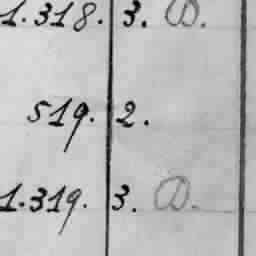 1.318. 3. D.
519. 2.
1.319. 3. D.